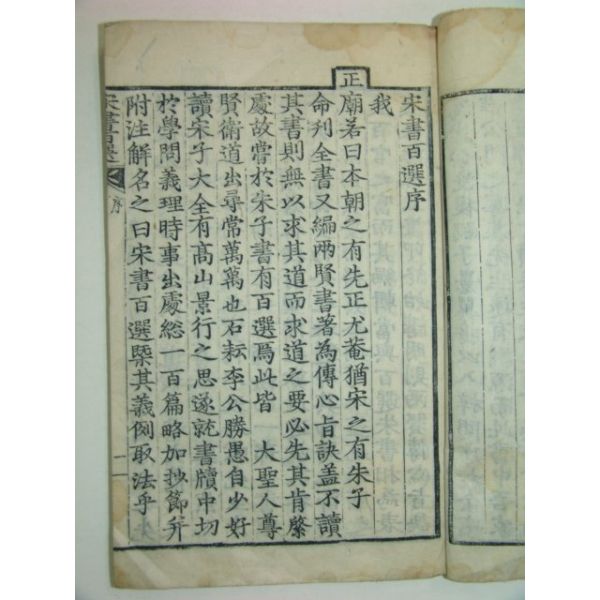 宋書百選序
我
正廟若曰本朝之有先正尤菴猶宋之有朱子
命刋全書又編兩賢書著為傳心旨訣盖不讀
其書則無以求其道而求道之要必先其肯綮
處故嘗於朱子書有百選焉此皆 大聖人尊
賢衛道出尋常萬萬也石耘李公勝愚自少好
讀宋子大全有高山景行之思遂就書牘中切
於學問義理時事出處総一百篇略加抄節幷
附注解名之曰宋書百選槩其義例取法乎
宋書百選
序
一